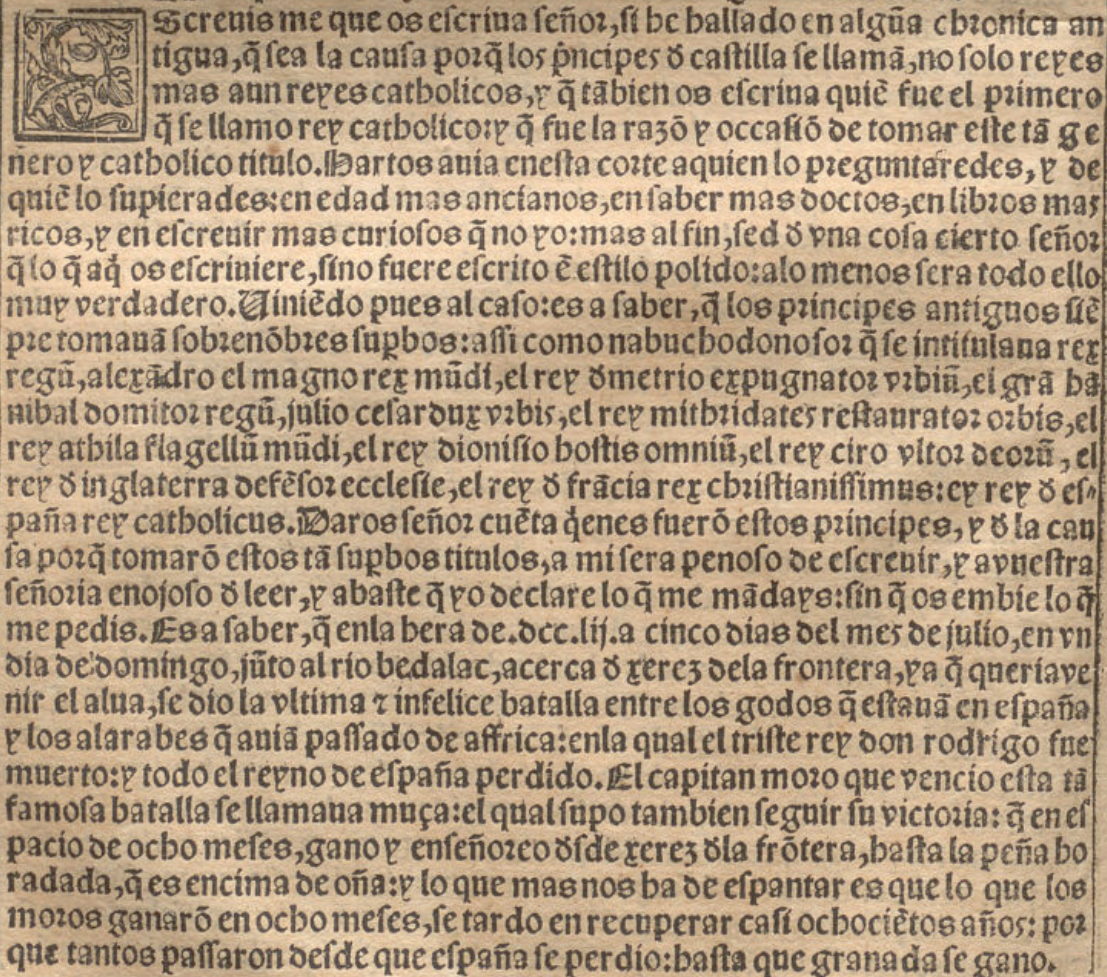 EScreuis me que os escriua señor, si he hallado en algũa chronica an
tigua, q̃ sea la causa porq̃ los p̃ncipes đ castilla se llamã, no solo reyes
mas aun reyes catholicos, y q̃ tãbien os escriua quiẽ fue el primero
q̃ se llamo rey catholico: y q̃ fue la razõ y occasiõ de tomar este tã ge
nero y catholico titulo. Hartos auia enesta corte aquien lo preguntaredes, y de
quiẽ lo supierades: en edad mas ancianos, en saber mas doctos, en libros mas
ricos, y en escreuir mas curiosos q̃ no yo: mas al fin, sed đ vna cosa cierto señor
q̃ lo q̃ aq̃ os escriuiere, sino fuere escrito ẽ estilo polido: alo menos sera todo ello
muy verdadero. Uiniẽdo pues al caso: es a saber, q̃ los principes antiguos siẽ
pre tomauã sobrenõbres supbos: assi como nabuchodonosor q̃ se intitulaua rex
regũ, alexãdro el magno rex mũdi, el rey đmetrio expugnator vrbiũ, el grã hã
nibal domitor regũ, julio cesar dux vrbis, el rey mithridates restaurator orbis, el
rey athila flagellũ mũdi, el rey dionisio hostis omniũ, el rey ciro vltor deorũ, el
rey đ inglaterra defẽsor ecclesie, el rey đ frãcia rex christianissimus: ey rey đ es-
paña rey catholicus. Daros señor cuẽta q̃enes fuerõ estos principes, y đ la cau
sa porq̃ tomarõ estos tã supbos titulos, a mi sera penoso de escreuir, y avuestra
señoria enojoso đ leer, y abaste q̃ yo declare lo q̃ me mãdays: sin q̃ os embie lo q̃
me pedis. Es a saber, q̃ enla hera de .dcc.lij. a cinco dias del mes de julio, en vn
dia de domingo, jũto al rio bedalac, acerca đ xerez dela frontera, ya q̃ queria ve
nir el alua, se dio la vltima ⁊ infelice batalla entre los godos q̃ estauã en españa
y los alarabes q̃ auiã passado de affrica: enla qual el triste rey don rodrigo fue
muerto: y todo el reyno de españa perdido. El capitan moro que vencio esta tã
famosa batalla se llamaua muça: el qual supo tambien seguir su victoria: q̃ en es
pacio de ocho meses, gano y enseñoreo đsde xerez đla frõtera, hasta la peña ho
radada, q̃ es encima de oña: y lo que mas nos ha de espantar es que lo que los
moros ganarõ en ocho meses, se tardo en recuperar casi ochociẽtos años: por
que tantos passaron desde que españa se perdio: hasta que granada se gano.